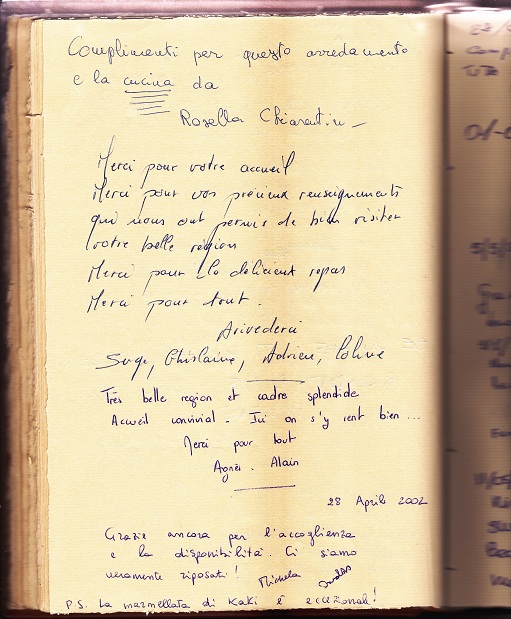 Complimenti per questo arredamento
e la cucina da
Rosella
Merci pour votre accueil
Merci pour vos précieux renseignements
qui nous ont permis de bien visiter
votre belle région
Merci pour le délicieux repas
Merci pour tout.
Arivederci
Serge, Ghislaine, Adrien,
Très belle region et cadre splendide
Accueil convivial. Ici on s'y sent bien ...
Merci pour tout
Agnès. Alain
28 Aprile 2002
Grazie ancora per l'accoglienza
e la disponibilità. Ci siamo
veramente riposati! Michela
P.S. La marmellata di Kaki è eccezionale!